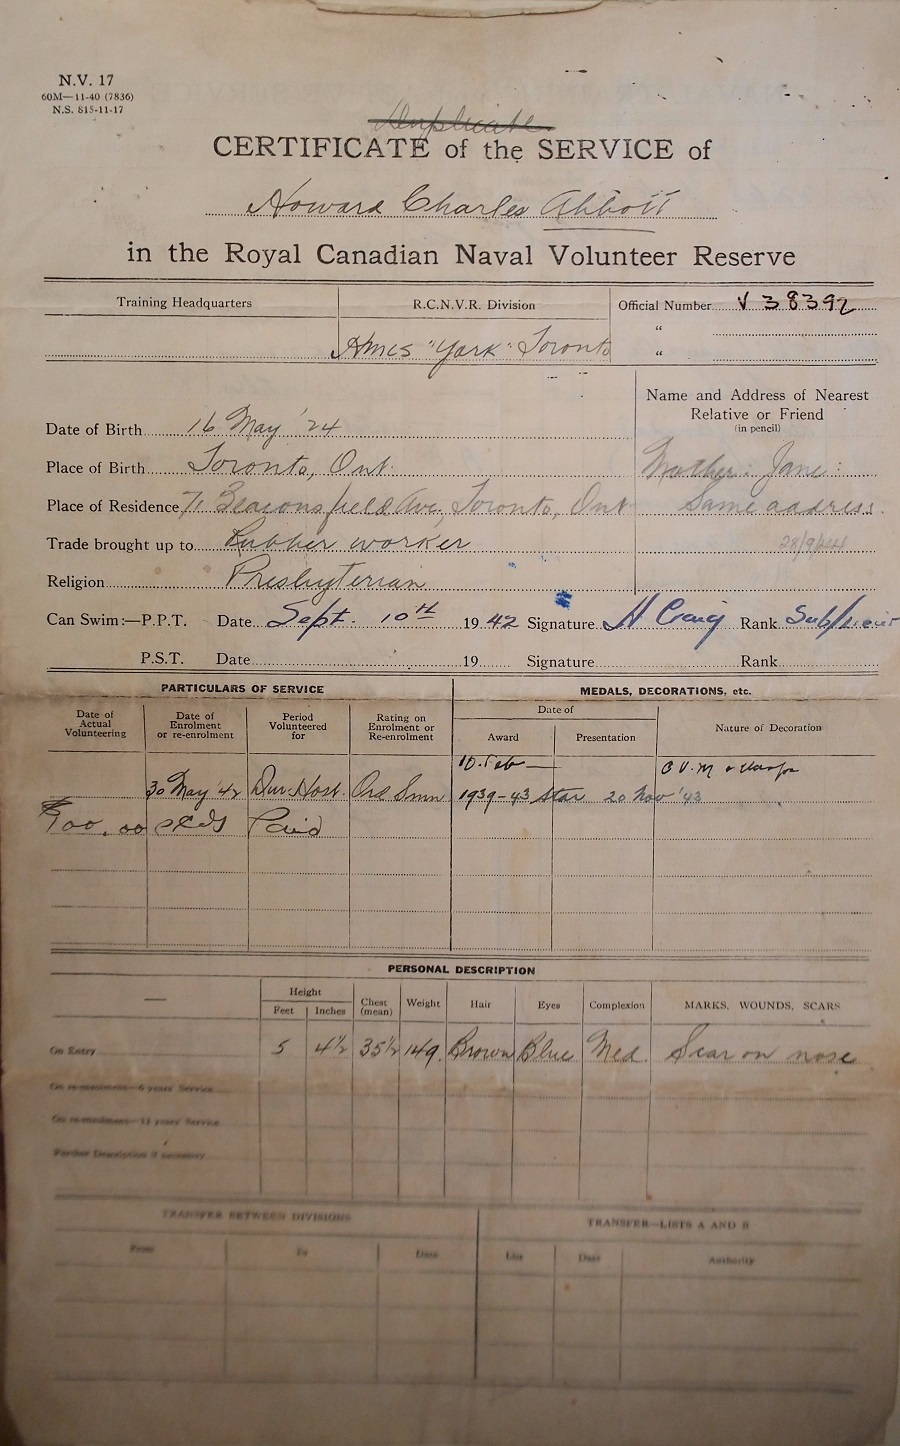 N.V. 17
60M—11-40 (7836)
N.S. 815-11-17
Duplicate
CERTIFICATE of the SERVICE of
Howard Charles Abbott
in the Royal Canadian Naval Volunteer Reserve
Training Headquarters R.C.N.V.R. Division Official Number V 38392
"
Hmcs "York" Toronto "
Name and Address of Nearest
Relative or Friend
(in pencil)
Date of Birth 16 May '24
Place of Birth Toronto, Ont. Mother: Jane:
Place of Residence 71 Beaconsfield Ave, Toronto, Ont Same address
Trade brought up to Rubber worker
Religion Presbyterian
Can Swim:—P.P.T. Date Sept. 10th 1942 Signature H Craig Rank Sub/Lieut
P.S.T. Date 19 Signature Rank
PARTICULARS OF SERVICE MEDALS, DECORATIONS, etc.
Date of Actual Volunteering Date of Enrolment or re-enrolment Period Volunteered for Rating on Enrolment or Re-enrolment Date of Award Presentation Nature of Decoration
10. Feb — C V.M & Clasp
30 May '42 Dur. Host. Ord Smn 1939-43 Star 20 Nov '43
100.00 Paid
PERSONAL DESCRIPTION
— Height Feet Inches Chest (mean) Weight Hair Eyes Complexion MARKS, WOUNDS, SCARS
On Entry 5 4½ 35½ 149. Brown Blue Med. Scar on nose
On re-enrolment—6 years' Service
On re-enrolment—11 years' Service
Further Description if necessary
TRANSFER BETWEEN DIVISIONS TRANSFER—LISTS A AND B
From To Date List Date Authority